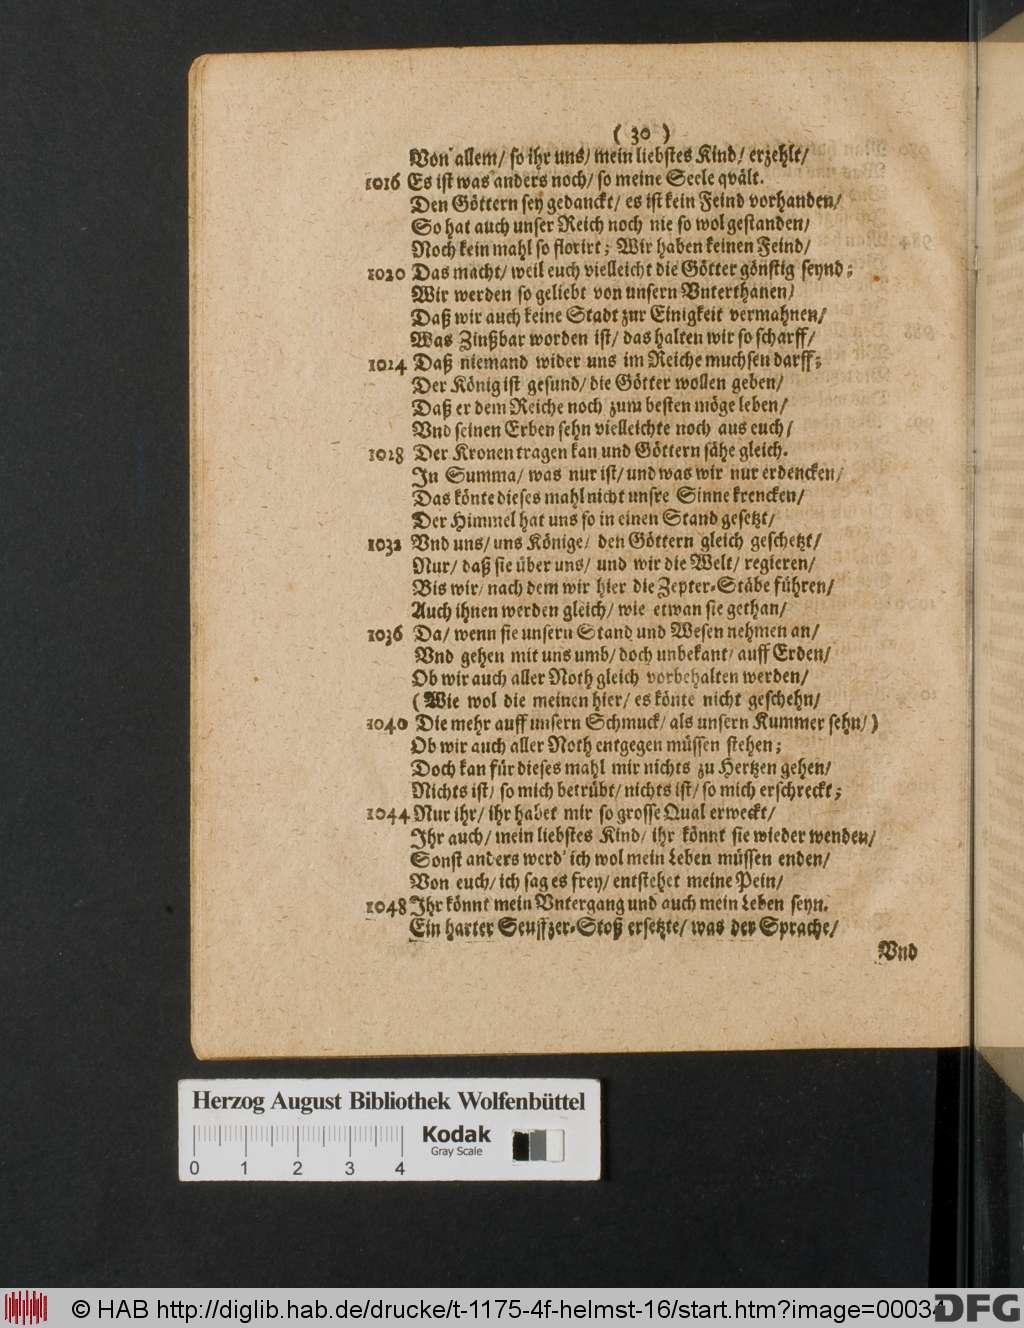 ( 30 )
Von allem/ so ihr uns/ mein liebstes Kind/ erzehlt/
1016 Es ist was anders noch/ so meine Seele qvält.
Den Göttern sey gedanckt/ es ist kein Feind vorhanden/
So hat auch unser Reich noch nie so wol gestanden/
Noch kein mahl so florirt; Wir haben keinen Feind/
1020 Das macht/ weil euch vielleicht die Götter gönstig seynd;
Wir werden so geliebt von unsern Vnterthanen/
Daß wir auch keine Stadt zur Einigkeit vermahnen/
Was Zinßbar worden ist/ das halten wir so scharff/
1024 Daß niemand wider uns im Reiche muchsen darff;
Der König ist gesund/ die Götter wollen geben/
Daß er dem Reiche noch zum besten möge leben/
Vnd seinen Erben sehn vielleichte noch aus euch/
1028 Der Kronen tragen kan und Göttern sähe gleich.
In Summa/ was nur ist/ und was wir nur erdencken/
Das könte dieses mahl nicht unsre Sinne krencken/
Der Himmel hat uns so in einen Stand gesetzt/
1032 Vnd uns/ uns Könige/ den Göttern gleich geschetzt/
Nur/ daß sie über uns/ und wir die Welt/ regieren/
Bis wir/ nach dem wir hier die Zepter-Stäbe führen/
Auch ihnen werden gleich/ wie etwan sie gethan/
1036 Da/ wenn sie unsern Stand und Wesen nehmen an/
Vnd gehen mit uns umb/ doch unbekant/ auff Erden/
Ob wir auch aller Noth gleich vorbehalten werden/
(Wie wol die meinen hier/ es könte nicht geschehn/
1040 Die mehr auff unsern Schmuck/ als unsern Kummer sehn/)
Ob wir auch aller Noth entgegen müssen stehen;
Doch kan für dieses mahl mir nichts zu Hertzen gehen/
Nichts ist/ so mich betrübt/ nichts ist/ so mich erschreckt;
1044 Nur ihr/ ihr habet mir so grosse Qual erweckt/
Ihr auch/ mein liebstes Kind/ ihr könnt sie wieder wenden/
Sonst anders werd' ich wol mein Leben müssen enden/
Von euch/ ich sag es frey/ entstehet meine Pein/
1048 Ihr könnt mein Vntergang und auch mein Leben seyn.
Ein harter Seuffzer-Stoß ersetzte/ was der Sprache/
Vnd
Herzog August Bibliothek Wolfenbüttel
Kodak
Gray Scale
0 1 2 3 4
© HAB http://diglib.hab.de/drucke/t-1175-4f-helmst-16/start.htm?image=00034
DFG